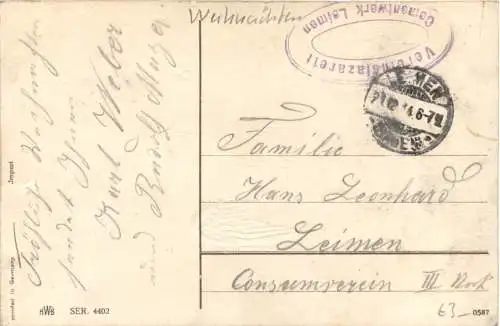 Weihnachten
Vereinslazarett
Cementwerk Leimen
LEIMEN
14.6-7N
BADEN
Familie
Hans Leonhard
Leimen
Consumverein III
Fröhliche
sendet Ihnen
Karl Weber
und Rudolf
Import
printed in Germany
HWB SER. 4402
63-
0587